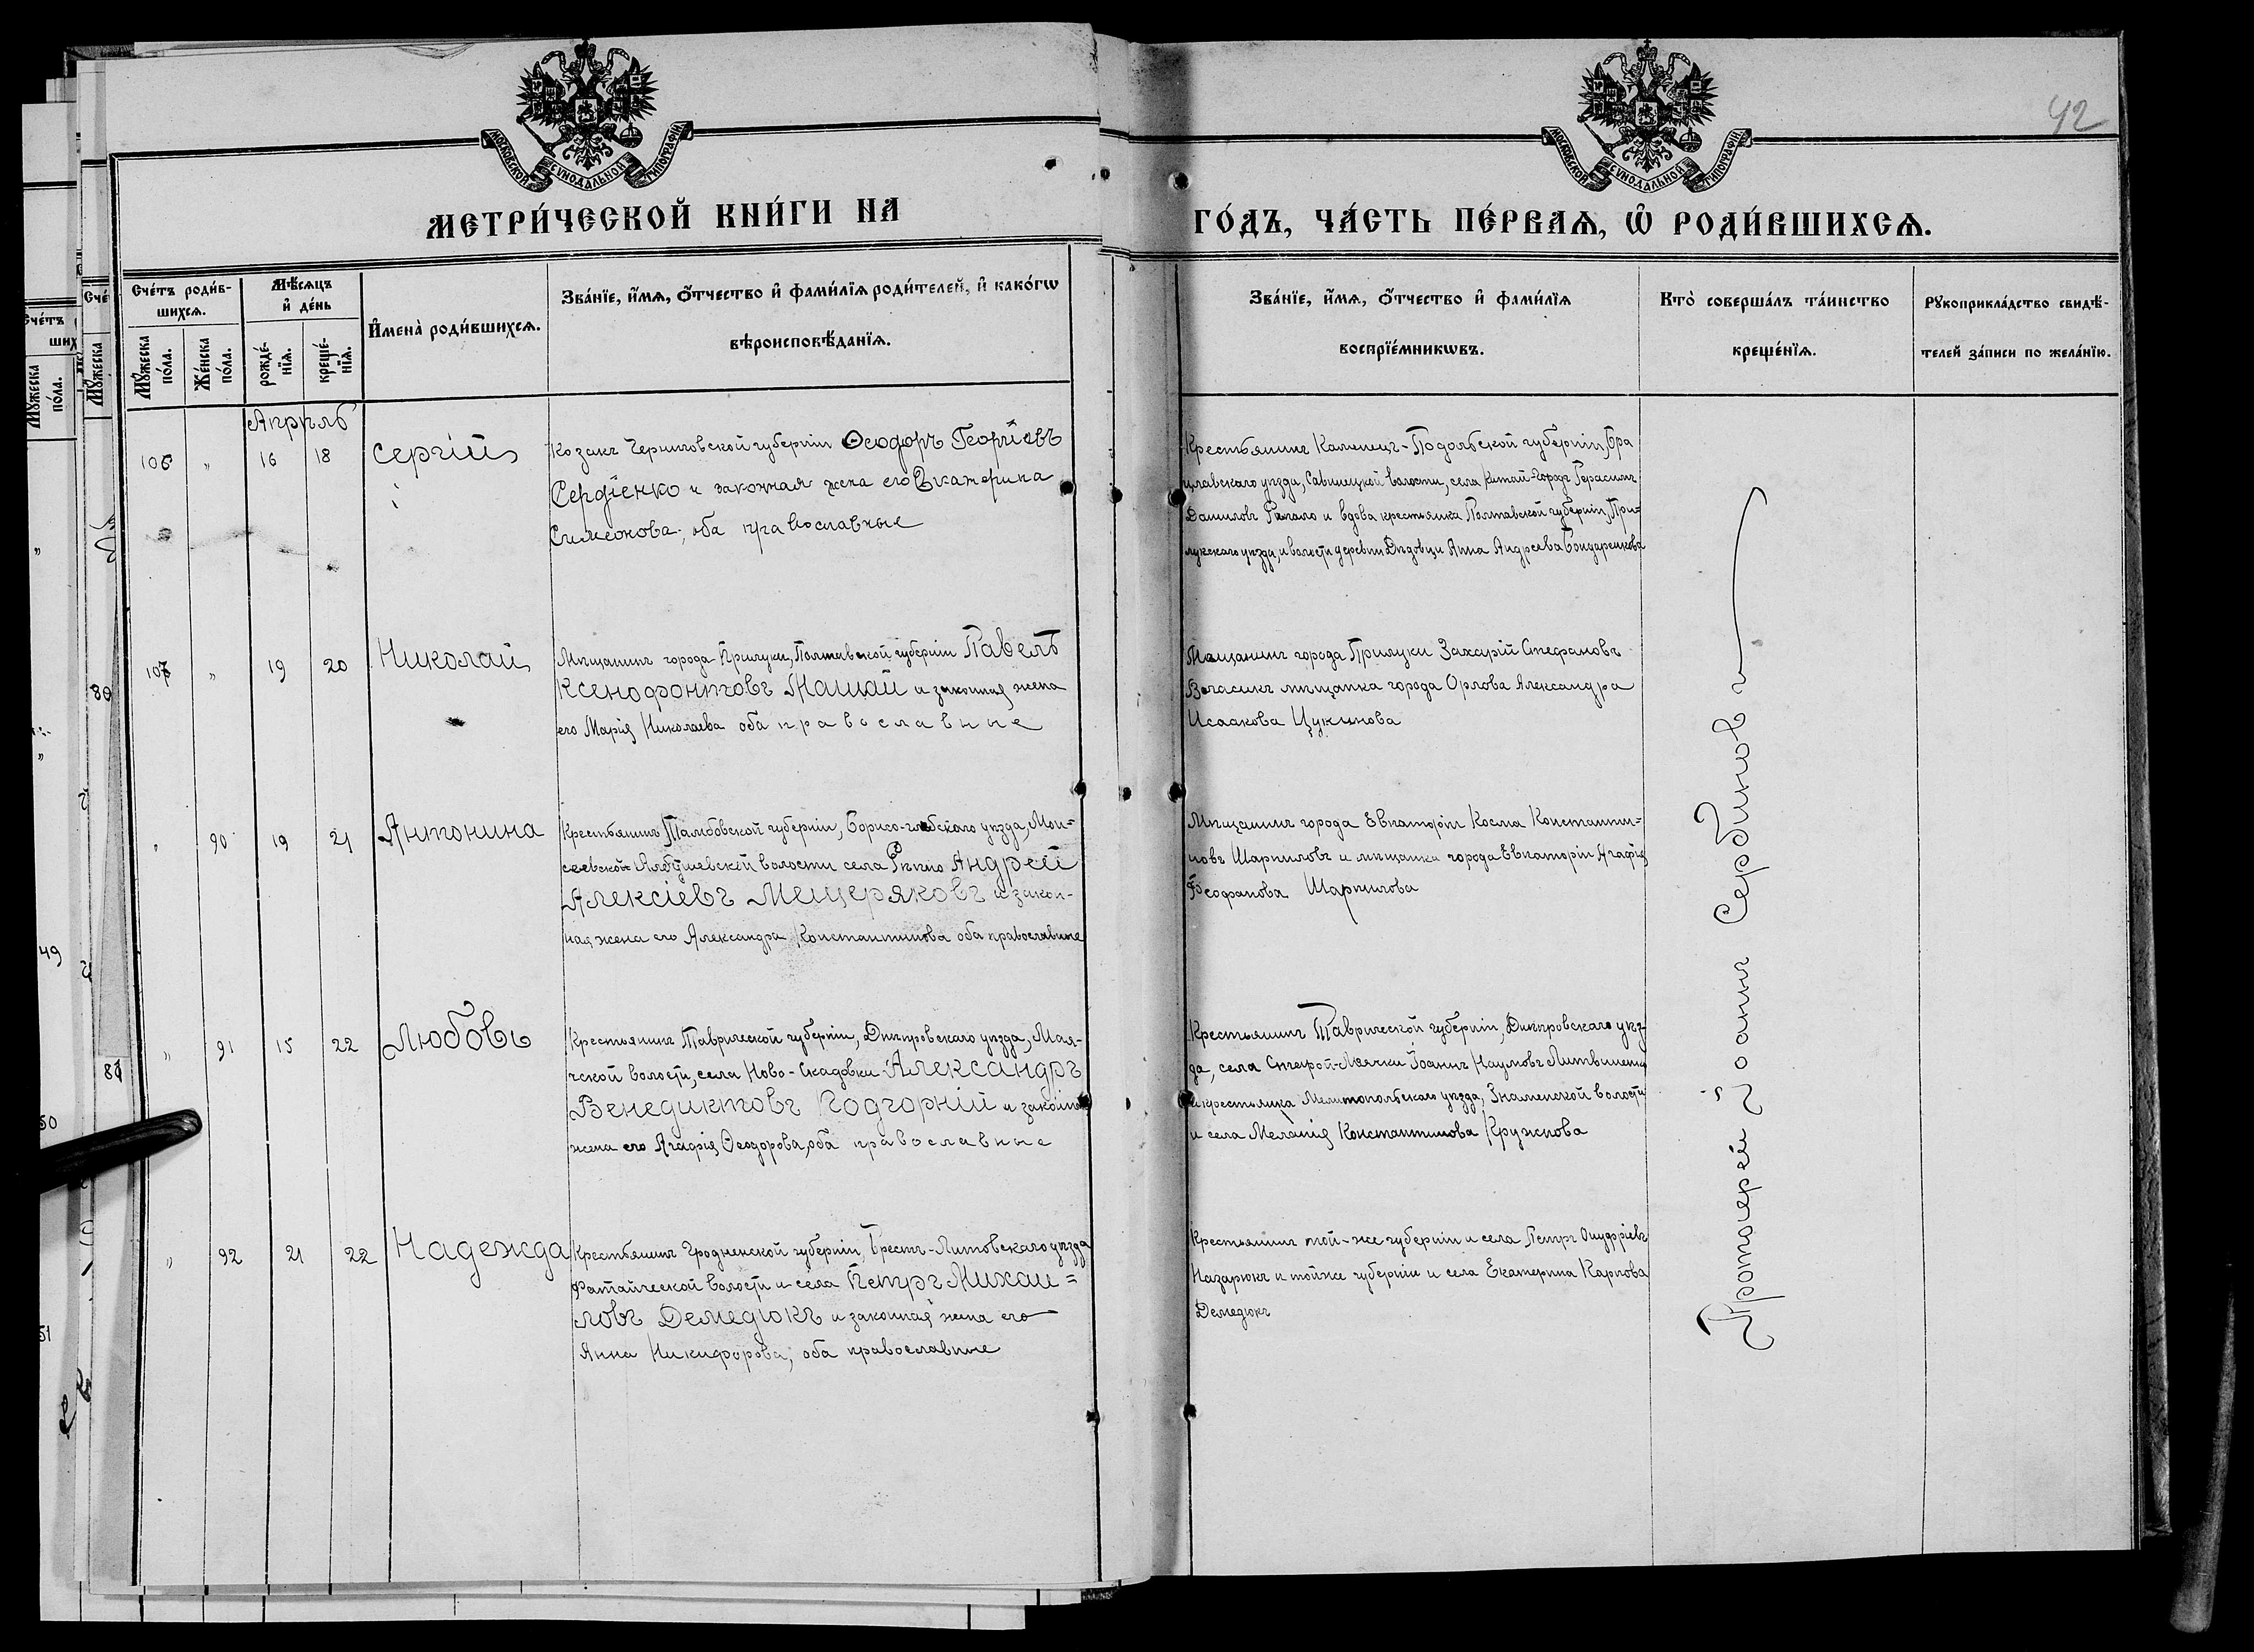 42
МОСКОВСКОЙ СѴНОДАЛЬНОЙ ТИПОГРАФІИ
МОСКОВСКОЙ СѴНОДАЛЬНОЙ ТИПОГРАФІИ
МЕТРИ́ЧЕСКОЙ КНИ́ГИ НА
ГО́ДЪ, ЧА́СТЬ ПЕ́РВАѦ, Ѽ РОДИ́ВШИХСѦ.
Сче́тъ роди́в-
шихсѧ.
Мꙋ́жеска по́ла.
Же́нска по́ла.
Мѣ́сѧцъ
и҆ де́нь
рожде́-
нїѧ.
креще́-
нїѧ.
И҆мена̀ роди́вшихсѧ.
Зва́нїе, и҆́мѧ, ѻ҆́тчество и҆ фами́лїѧ роди́телей, и҆ како́гѡ
вѣроисповѣ́данїѧ.
Зва́нїе, и҆́мѧ, ѻ҆́тчество и҆ фами́лїѧ
воспрїе́мникѡвъ.
Кто̀ соверша́лъ та́инство
креще́нїѧ.
Рꙋкоприкла́дство свидѣ́-
телей за́писи по жела́нїю.
Апрѣль
106 „ 16 18 Сергій
Козакъ Черниговской губерніи Ѳеодоръ Георгіевъ
Сердіенко и законная жена его Екатерина
Симеонова; оба православные
Крестьянинъ Каменец-Подольской губерніи, Бра
цлавскаго уѣзда, Савинецкой волости, села Китай-Городъ Герасимъ
Даниловъ и вдова крестьянка Полтавской губерніи, При=
лукскаго уѣзда, и волости деревни Дѣдовцы Анна Андреева Бондаренкова
107 „ 19 20 Николай
Мѣщанинъ города Прилуки, Полтавской губерніи Павелъ
Ксенофонтовъ и законная жена
его Марія Николаева оба православные
Мѣщанинъ города Прилуки Захарій Стефановъ
мѣщанка города Орлова Александра
Исаакова Цукинова
„ 90 19 21 Антонина
Крестьянинъ Тамбовской губерніи, Борисо-глѣбскаго уѣзда, Мои=
сеевской волости села Андрей
Алексіевъ Мещеряковъ и закон-
ная жена его Александра Константинова оба православные
Мѣщанинъ города Евпаторіи Косма Константи=
новъ Шарпиловъ и мѣщанка города Евпаторіи Агафія
Ѳеофанова Шарпилова
„ 91 15 22 Любовь
Крестьянинъ Таврической губерніи, Днѣпровскаго уѣзда, Мая-
чской волости, села Ново-Скадовки Александръ
Венедиктовъ Подгорній и законная
жена его Агафія Ѳеодорова, оба православные
Крестьянинъ Таврической губерніи, Днѣпровскаго уѣз-
да, села Старой-Маячки Іоаннъ Наумовъ Литвиненко
и крестьянка Мелитопольскаго уѣзда, Знаменской волости
и села Меланія Константинова Кружкова
„ 92 21 22 Надежда
Крестьянинъ Гродненской губерніи, Брестъ-Литовскаго уѣзда
волости и села Петръ Михаи=
ловъ Демедюкъ и законная жена его
Анна Никифорова, оба православные
Крестьянинъ той-же губерніи и села Петръ Онуфріевъ
Назарюкъ и тойже губерніи и села Екатерина Карпова
Демедюкъ
Протоіерей Іоаннъ Сербиновъ